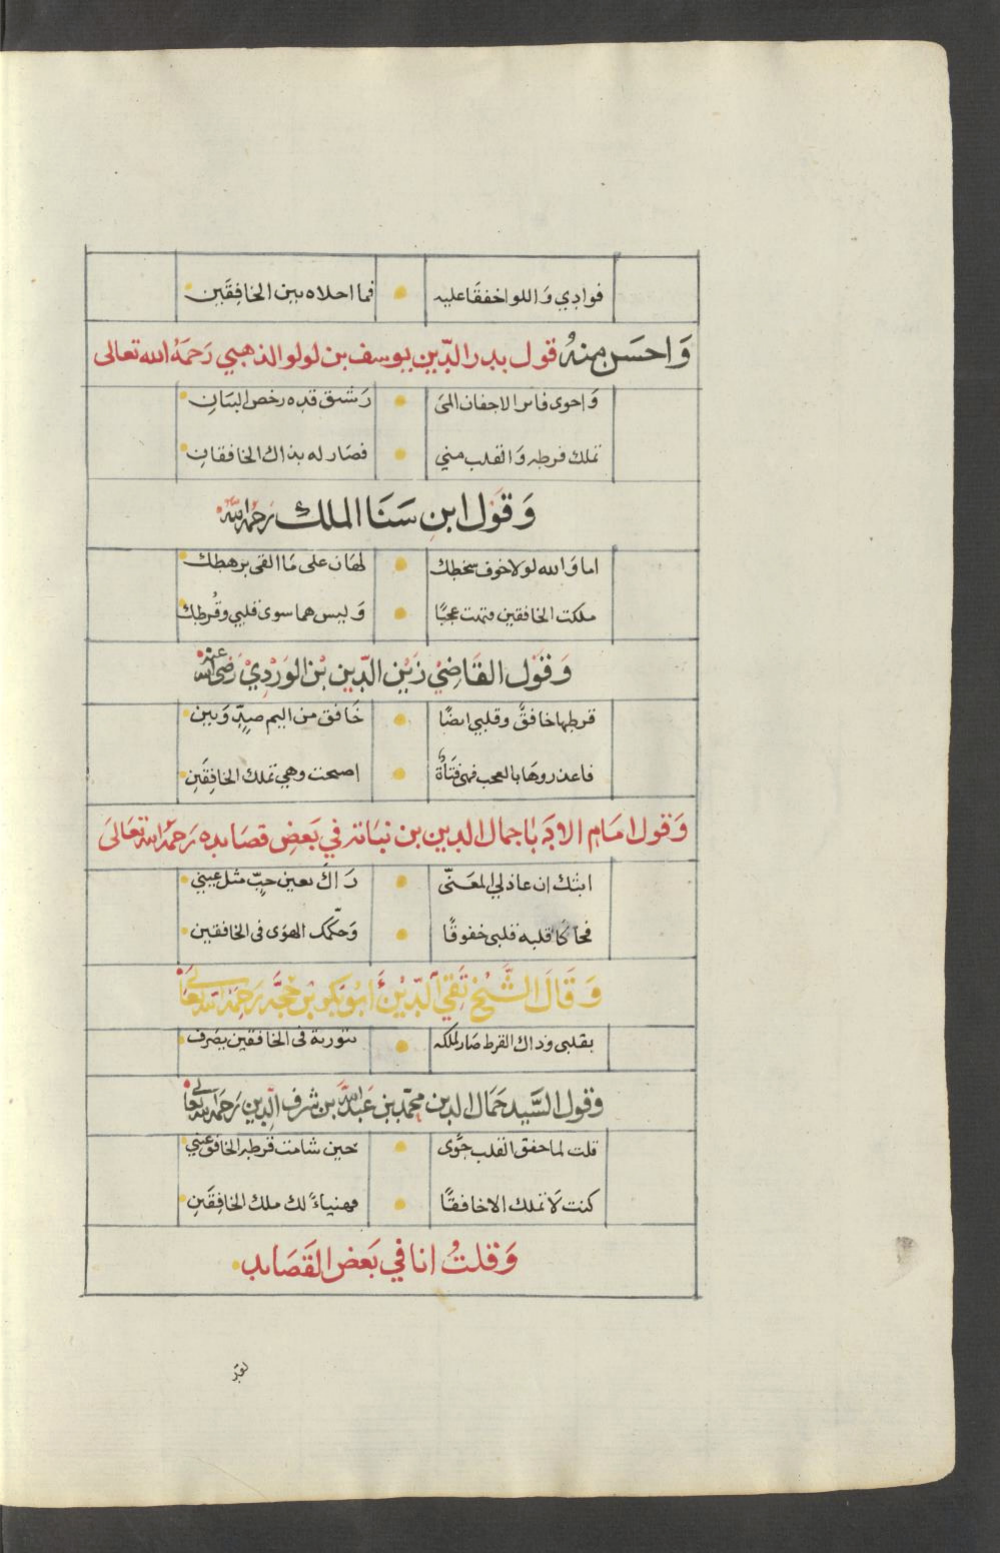 فوادي وَاللوا خفقَا عليه • فما احلاه بين الخافِقَين
وَاحسَن مِنهُ قول بدر الدّين يوسف بن لولو الذهبي رَحمَهُ الله تعالى
وَاحوى فاتر الاجفان المىَ • رَشيق قده رخص البنَانِ
تملك قرطه وَالقلب مني • فصَار له بذاك الخافقانِ
وَقوَل ابنِ سَنَا الملك رَحمَهُ اللهُ
اما وَالله لولا خوف سخطك • لهَان على مَا القى برهطك
ملكت الخافقين فتهت عجبًا • وَليس هما سوى قلبي وقُرطك
وَقَوْل القَاضِيْ زَيْن الدِّين بْن الوَرْدِيْ رَضي الله عنه
قرطها خافقٌ وقلبي ايضًا • خَافق من اليم صدٍّ وَبين
فاعذروهَا بالعجب فهى فتَاةٌ • اصبحت وهي تملك الخافِقَينِ
وَقول امَام الادَبا جمال الدين بن نبَاتة في بَعضِ قصَايده رَحمَهُ الله تعَالىَ
ابثك ان عاذلي المعَنّى • رَاكَ بعين حبٍّ مثل عيني
فحاكا قلبه قلبي خفوقًا • وَحكّمك الهوَى فى الخافقين
وَقَالَ الشَّيْخ تَقي الدّيْن أبُو بَكر بْن حُجَّه رَحِمَهُ الله تعَالىَ
بقلبى وذاك القرط صَار لملكه • بتورية فى الخافقين يصَرف
وقول السَّيد جَمَال الدين محمّد بن عَبْد الله بن شرف الدِين رَحمَهُ الله تعَالى
قلت لما خفق القلب جوًى • حين شامت قرطه الخافق عيني
كنت لَا تملك الا خافقًا • فهنياءً لك ملك الخافِقَينِ
وَقلتُ انا في بَعض القَصَايد
لقد